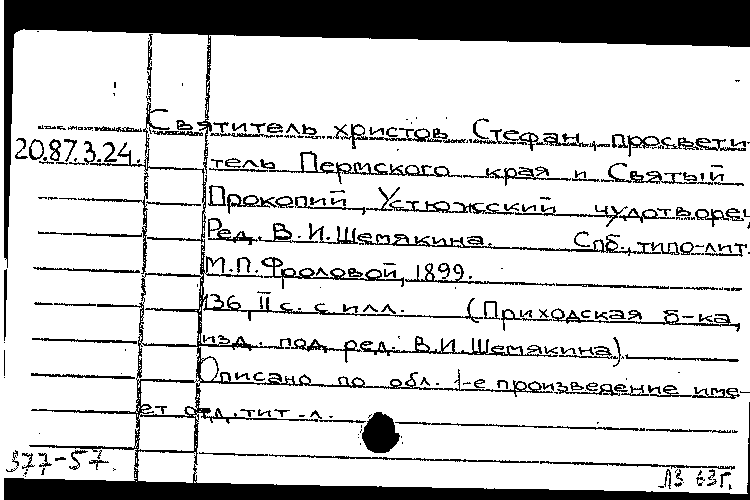 Святитель христов Стефан, просвети
20.87.3.24. тель Пермского края и Святый
Прокопий, Устюжский чудотворец,
Ред. В.И.Шемякина. Спб., типо-лит.
М.П.Фроловой, 1899.
136, II с. с илл. (Приходская б-ка,
изд. под ред. В.И.Шемякина).
Описано по обл. 1-е произведение име
ет отд. тит. л.
377-57. ЛЗ 63г.